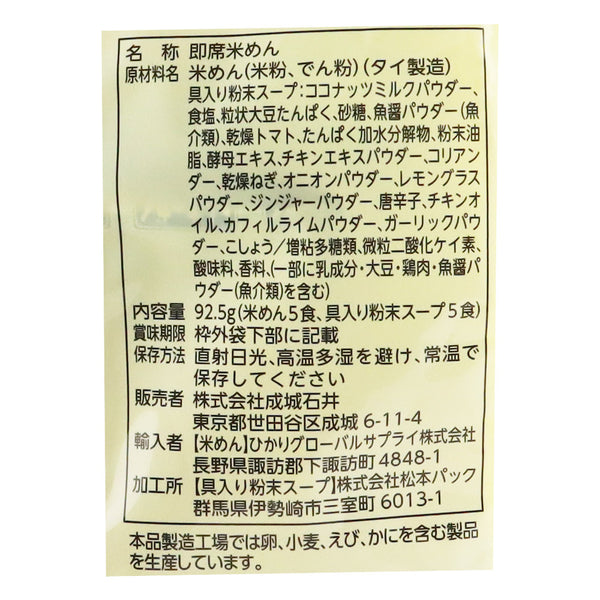 名 称 即席米めん
原材料名 米めん(米粉、でん粉)(タイ製造)
具入り粉末スープ:ココナッツミルクパウダー、
食塩、粒状大豆たんぱく、砂糖、魚醤パウダー(魚
介類)、乾燥トマト、たんぱく加水分解物、粉末油
脂、酵母エキス、チキンエキスパウダー、コリアン
ダー、乾燥ねぎ、オニオンパウダー、レモングラス
パウダー、ジンジャーパウダー、唐辛子、チキンオ
イル、カフィルライムパウダー、ガーリックパウ
ダー、こしょう/増粘多糖類、微粒二酸化ケイ素、
酸味料、香料、(一部に乳成分・大豆・鶏肉・魚醤パ
ウダー(魚介類)を含む)
内容量 92.5g(米めん5食、具入り粉末スープ5食)
賞味期限 枠外袋下部に記載
保存方法 直射日光、高温多湿を避け、常温で
保存してください
販売者 株式会社成城石井
東京都世田谷区成城 6-11-4
輸入者 【米めん】ひかりグローバルサプライ株式会社
長野県諏訪郡下諏訪町 4848-1
加工所 【具入り粉末スープ】株式会社松本パック
群馬県伊勢崎市三室町 6013-1
本品製造工場では卵、小麦、えび、かにを含む製品
を生産しています。